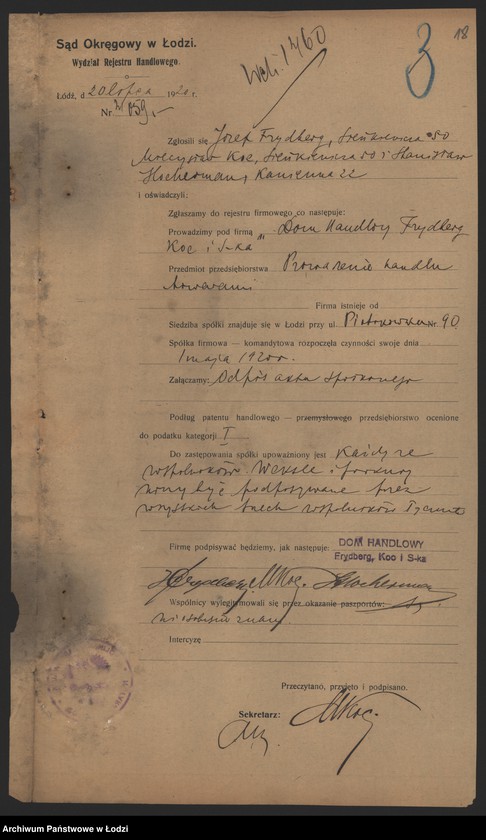 18
3
Sąd Okręgowy w Łodzi.
Wydział Rejestru Handlowego.
1760
Łódź, d. 20 lipca 1920 r.
Nr 2059
Zgłosili się Józef Frydberg, Sienkiewicza 50
Mieczysław Koc, Sienkiewicza 50 i Stanisław
Hocherman, Kamienna 22
i oświadczyli:
Zgłaszamy do rejestru firmowego co następuje:
Prowadzimy pod firmą „Dom Handlowy Frydberg
Koc i S-ka
Przedmiot przedsiębiorstwa Prowadzenie handlu
towarami
Firma istnieje od
Siedziba spółki znajduje się w Łodzi przy ul. Piotrkowska Nr. 90
Spółka firmowa — komandytowa rozpoczęła czynności swoje dnia
1 maja 1920 r.
Załączamy: Odpis aktu spółkowego
Podług patentu handlowego — przemysłowego przedsiębiorstwo ocenione
do podatku kategorji I
Do zastępowania spółki upoważniony jest każdy ze
wspólników. Weksle i
być podpisywane przez
wszystkich trzech wspólników
Firmę podpisywać będziemy, jak następuje: DOM HANDLOWY
Frydberg, Koc i S-ka
Frydberg MKoc. SHocherman
Wspólnicy wylegitymowali się przez okazanie paszportów:
Intercyzę
Przeczytano, przyjęto i podpisano.
Sekretarz: MKoc.
Archiwum Państwowe w Łodzi